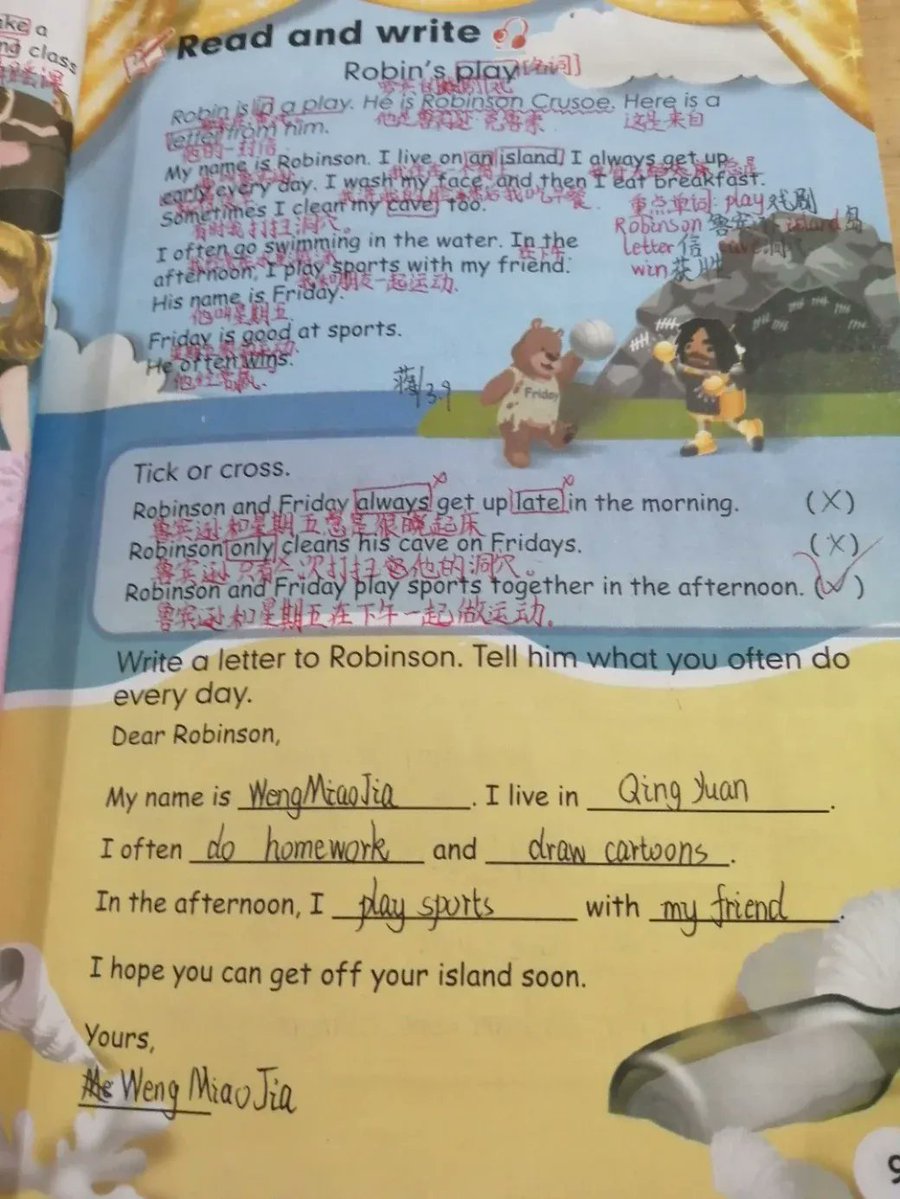 ake a
ng class
Read and write
Robin's play [名词]
Robin is in a play. He is Robinson Crusoe. Here is a
他是鲁宾逊 克鲁索 这是来自
letter from him.
他的一封信
My name is Robinson. I live on an island. I always get up
early every day. I wash my face, and then I eat breakfast.
Sometimes I clean my cave, too.
有时我打扫洞穴。
重点单词: play戏剧
Robinson 鲁宾逊 island岛
letter 信 cave洞穴
win获胜
I often go swimming in the water. In the
在下午
afternoon, I play sports with my friend.
我和朋友一起运动.
His name is Friday.
他叫星期五
Friday is good at sports.
He often wins.
他经常赢.
3.9
Friday
Tick or cross.
Robinson and Friday always get up late in the morning. (X)
鲁宾逊和星期五总是很晚起床
Robinson only cleans his cave on Fridays. (X)
鲁宾逊只有打扫他的洞穴。
Robinson and Friday play sports together in the afternoon. (✓)
鲁宾逊和星期五在下午一起做运动。
Write a letter to Robinson. Tell him what you often do
every day.
Dear Robinson,
My name is WengMiaoJia. I live in Qing Yuan.
I often do homework and draw cartoons.
In the afternoon, I play sports with my friend.
I hope you can get off your island soon.
Yours,
Weng MiaoJia
9